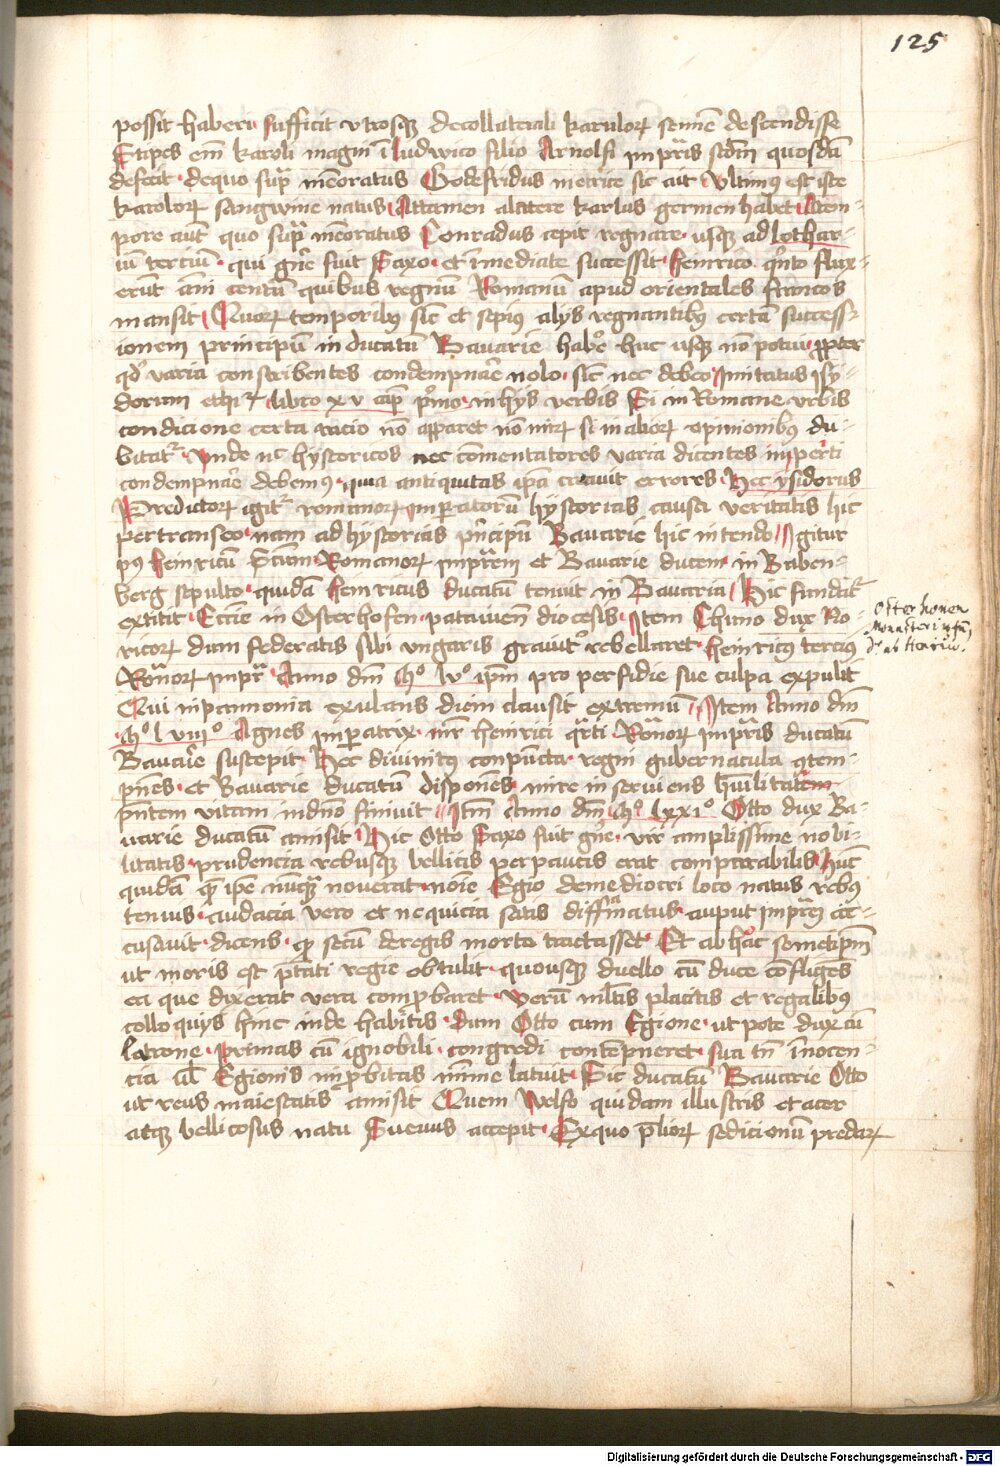 125
possit haberi sufficit utrosq; de collaterali karulor̄ semīe descendisse
Stipes em̄ karoli magni ī ludwico filio Arnolfi imp̄ris scd̄m quosdā
defecit · de quo sup̄ mēoratus Gotefridus metrice sic ait Ultim9 est iste
karolor̄ sangwine natus Attamen a latere karlus germen habet A tem-
pore aūt quo sup̄ mēoratus Conradus cepit regnare · usq; ad lothar-
iū terciū · qui gn̄e fuit Saxo · et īmediate successit Heinrico q̄nto flux-
erūt āni centū quibus regnū Romanū apud orientales francos
mansit Quor̄ temporib9 sic et sepius alijs regnantib9 certā success-
ionem principū in ducatu Bauarie hab̄e huc usq; nō potui · p̄pter
qd̄ varia conscribentes condempnar̄e nolo · sic nec debeo Imitatus ysy-
dorum ethi libro xv cap̄ p̄mo · in hijs verbis Si in Romane urbis
condicione certa racio nō apparet nō mir̄ si in alior̄ opinionib9 du-
bitat̄ · Unde nc̄ hystoricos nec cōmentatores varia dicentes imperiti
condempnar̄e debem9 · quia antiquitas ip̄a creauit errores · Hec ysidorus
Predictor̄ igit̄ romanor̄ imperatorū hystorias causa veritatis hic
pertranseo · nam ad hystorias p̄ncipū Bauarie hic intendo Igitur
p9 Heinricum Romanor̄ imp̄rem et Bauarie ducem in Baben-
berg sepulto · quidā heinricus ducatū tenuit in Bauaria Hic fundat̄
extitit · Ecc̄ie in Osterhofen · patauien̄ diocesis Item Chuno dux No-
ricor̄ dum federatis sibi ungaris grauit̄ rebellaret · heinric9 tercius
Rōnor̄ imp̄r Anno dm̄ Mº lvº ip̄m pro perfidie sue culpa expulit
Qui in pannonia exulans diem clausit extremū Item Anno dm̄
Mº lviiiº Agnes imp̄atrix · mr̄ heinrici q̄rti Rōnor̄ imp̄ris ducatū
Bauarie suscepit · Hec diuinit9 conpuncta · regni gubernacula 9tem-
pnēs · et Bauarie ducatū disponēs · mire inseruiens hūilitatem
p̄ntem vitam in dn̄o finiuit Itm̄ Anno dm̄ Mº lxxiº Otto dux Ba-
uarie ducatū amisit Hic Otto Saxo fuit gn̄e · vir amplissime nobi-
litatis · prudencia rebusq; bellicis perpaucis erat comparabilis Hūc
quidā q̄ ip̄e nūq̄ nouerat · noīe Egio de mediocri loco natus reb9
tenuis · audacia vero et nequicia satis diffamatus · aput imp̄rē ac-
cusauit · dicens · q̄ secū de regis morte tractasset · Et ab hac semetip̄m
ut moris est p̄tati regie obtulit · quousq; duello cū duce cōfligēs
ea que dixerat vera comp̄baret · Verū ml̄tis placitis et regalibus
colloquijs hinc inde habitis · dum Otto cum Egione · ut pote dux cū
latrone · Primas cū ignobili · congredi contēpneret · sua tn̄ īnocen-
cia ul̄ Egionis imp̄bitas mīime latuit · Sic ducatū Bauarie Otto
ut reus maiestatis amisit Quem Welfo quidam illustris et acer
atq; bellicosus natu Sueuus accepit · Ex quo p̄lior̄ sedicionū predar̄
Osterhouen
Monasteriū